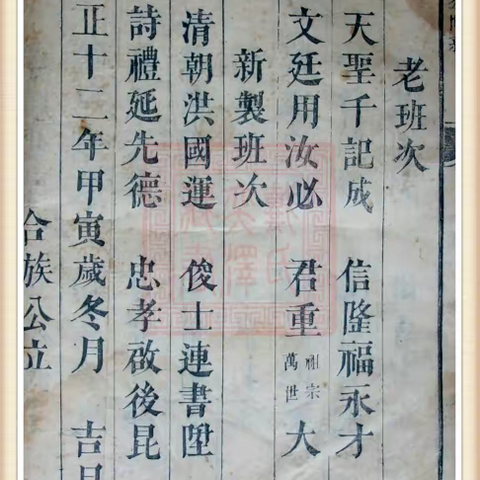 老班次
天聖千記成 信隆福永才
文廷用汝必 君重 祖宗 萬世 大
新製班次
清朝洪國運 俊士連書陞
詩禮延先德 忠孝啟後昆
正十二年甲寅歲冬月 吉日
合族公立